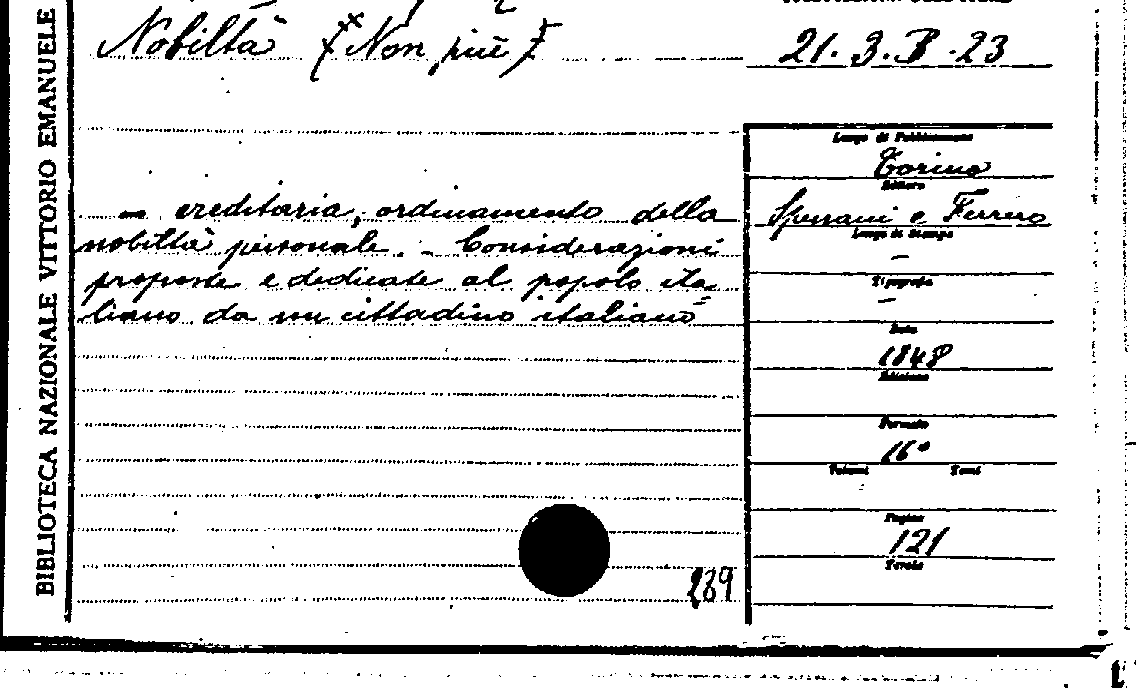 BIBLIOTECA NAZIONALE VITTORIO EMANUELE
Nobiltà (Non più)
21. 3. B. 23
— ereditaria, ordinamento della
nobiltà personale. - Considerazioni
proposte e dedicate al popolo ita=
liano da un cittadino italiano
289
Luogo di Pubblicazione
Torino
Editore
Speirani e Ferrero
Luogo di Stampa
—
Tipografia
—
Data
1848
Edizione
Formato
16°
Volumi Tomi
Pagine
121
Tavole